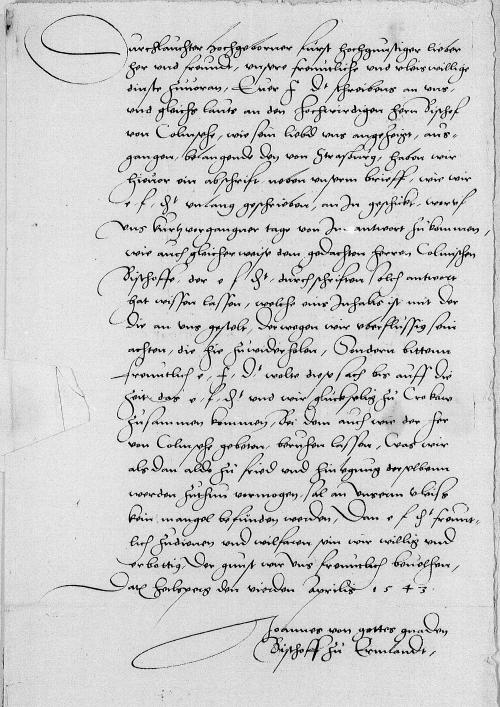 Durchlauchter hochgeborner furst hochgunstiger lieber
her und freundt, unsere freuntliche und vleiswillige
dinste zuvoran, Euer f dt schreibens an uns,
und gleichs lauts an den hochwirdigen hern Bischof
von Colmsehe, wie sein liebd uns angezeigt, aus-
gangen, belangende den von Straspurg, haben wir
hievor ein abschrift neben unserm brieff, wie wir
e f dt unlang geschrieben, an In geschickt, woruf
uns kurtzvergangner tage von Im antwort zukommen,
wie auch gleicher weise dem gedachten herren Colmischen
Bischoffe, der e f dt durchschriften solch antwort
hat wissen lassen, welche eins Inhalts ist mit der
die an uns gestelt, derwegen wir uberflussig sein
achten, die hie zuwiderholen, Sondern bittenn
freuntlich e, f, dt wolte diese sach bis auff die
Zeit, das e, f, dt und wir glückselig zu Crokaw
zusammen kommen, bei dem auch wie der her
von Colmsehe gebeten, beruhen lassen, Was wir
als dan aldo zu fried und hinlegung derselbenn
werden zuthun vermogen, sal an unserm vleis
kein mangel befunden werden, Dan e f dt freunt-
lich zudienen und wilfaren sein wir willig und
erbottig, Der gunst wir uns freuntlich bevelhen,
Dat Heilsperg den vierden Aprilis 1543
Joannes von gottes gnaden
Bischoff zu Ermlandt,